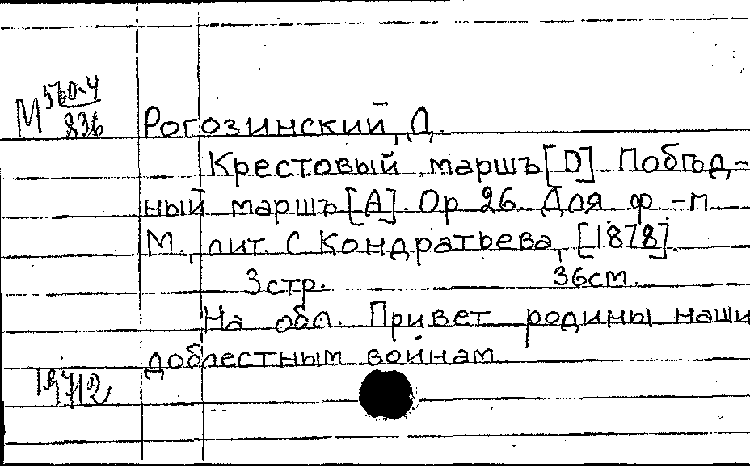 М 560-4
836
Рогозинский, Д.
Крестовый маршъ [D] Побѣд-
ный маршъ [A] Op 26 Для ф-п
М., лит С Кондратьева, [1878].
3стр. 36см.
На обл. Привет родины наши
доблестным войнам